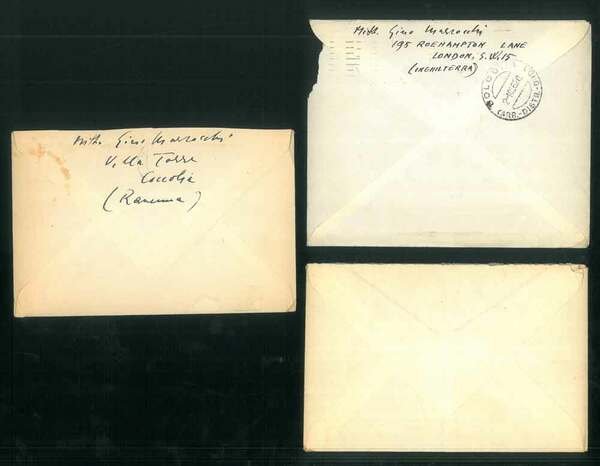 Mitt. Gino Marzocchi
Villa Torre
Coccolia
(Ravenna)
Mitt. Gino Marzocchi
195 ROEHAMPTON LANE
LONDON, S.W.15
(INGHILTERRA)
BOLOG
(ARR.-DISTR.